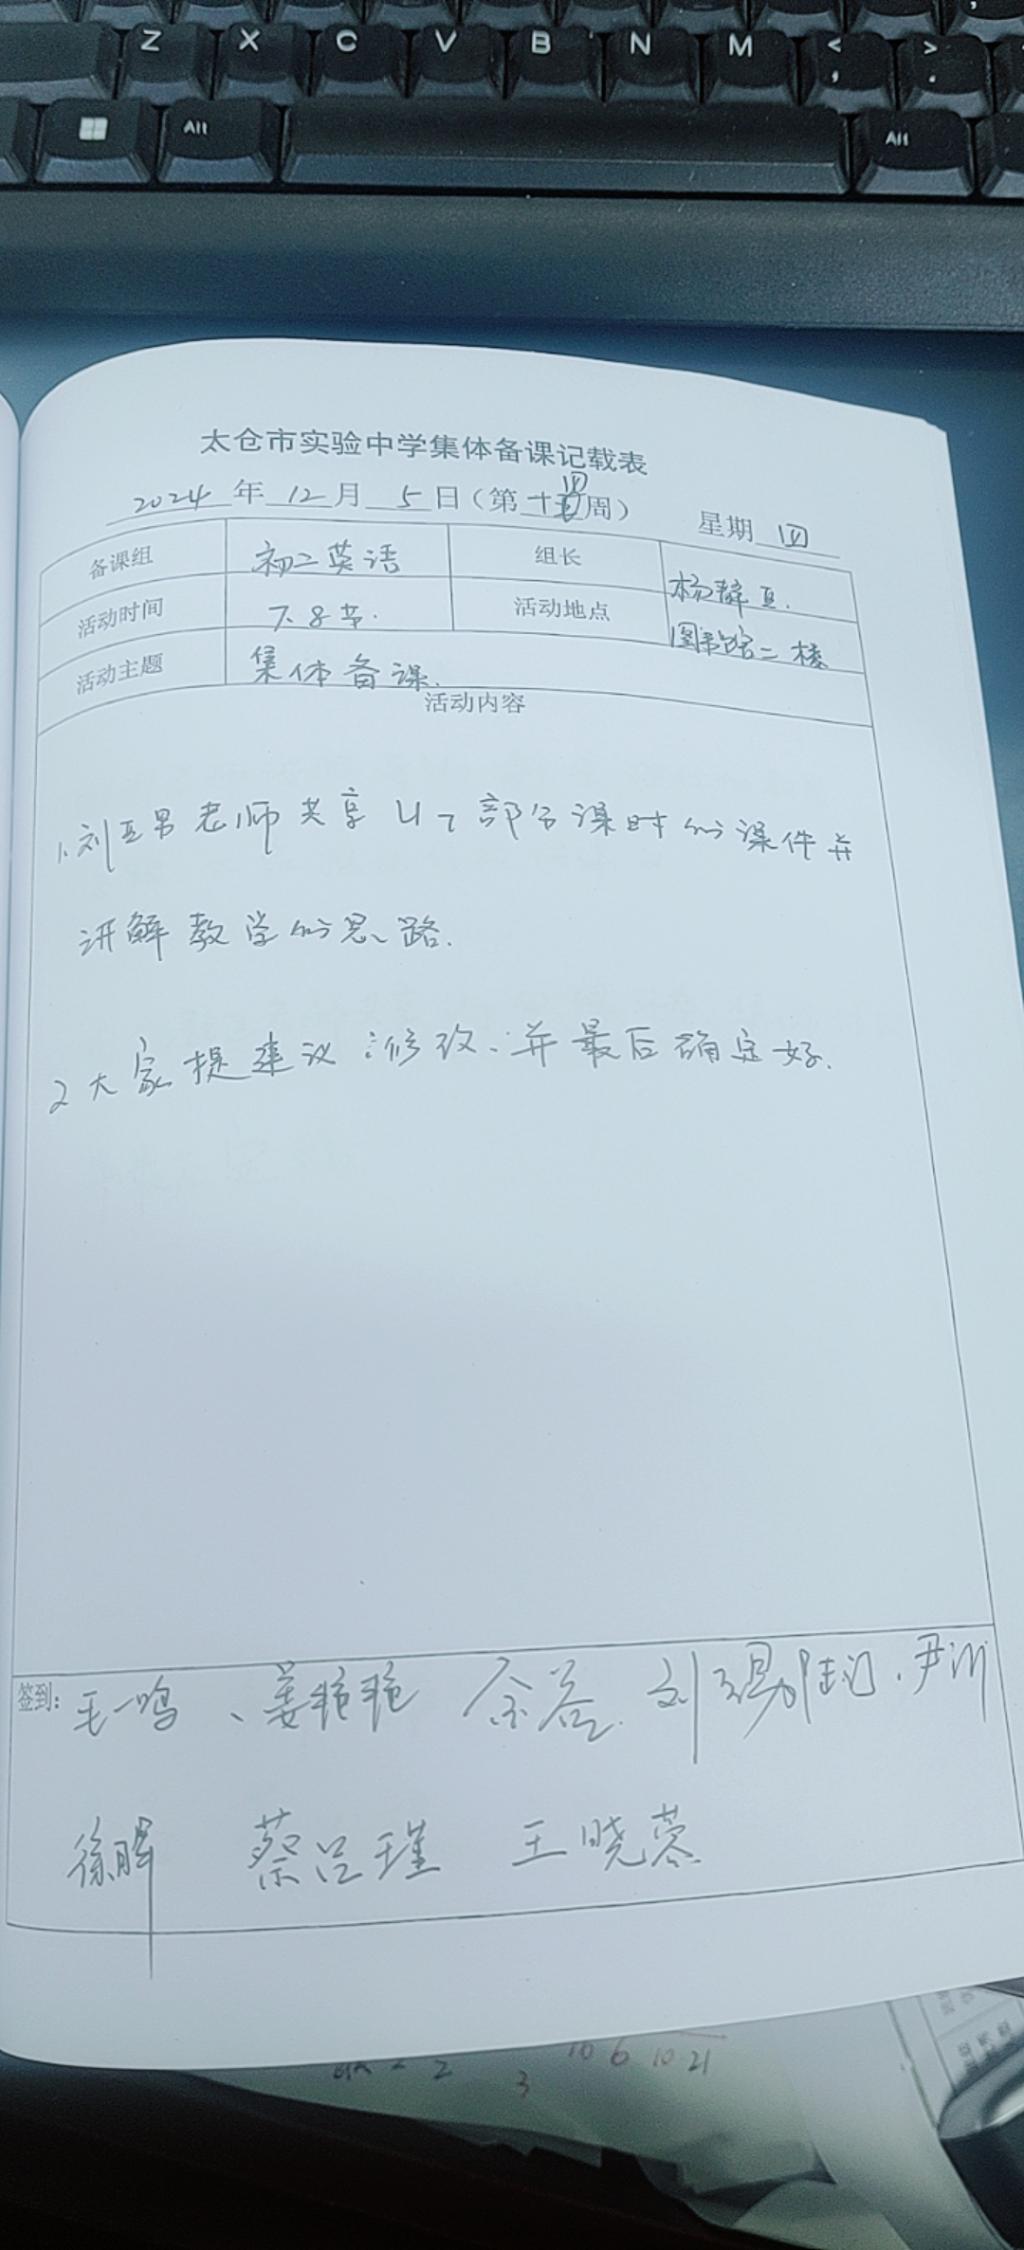 Z X C V B N M < , > .
Alt Alt
太仓市实验中学集体备课记载表
2024年12月5日(第十四周) 星期四
备课组 初二英语 组长 杨静亚.
活动时间 7.8节. 活动地点 图书馆二楼
活动主题 集体备课.
活动内容
1.刘亚男老师共享U7部分课时的课件并
讲解教学的思路.
2大家提建议;修改.并最后确定好.
签到: 毛一鸣、姜艳艳 余益.
徐晖 蔡吕瑾 王晓蓉
2 3 10 6 10 21